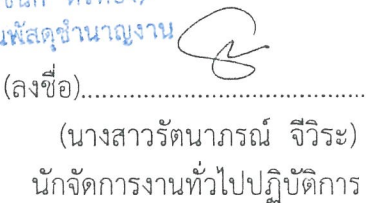 นพัสดุชำนาญงาน
(ลงชื่อ)....................................
(นางสาวรัตนาภรณ์ จีวิระ)
นักจัดการงานทั่วไปปฏิบัติการ